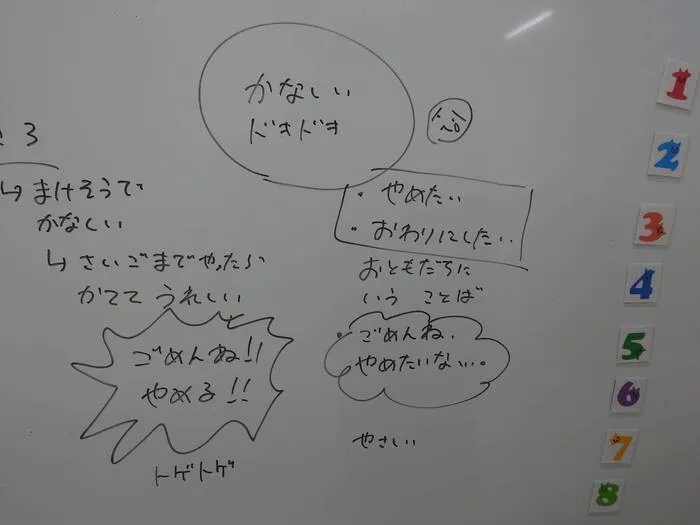 かなしい
ドキドキ
3
↳ まけそうで
かなしい
↳ さいごまでやったら
かてて うれしい
ごめんね!!
やめる!!
トゲトゲ
・やめたい
・おわりにしたい
おともだちに
いう ことば
・ごめんね.
やめたいな...。
やさしい
1
2
3
4
5
6
7
8